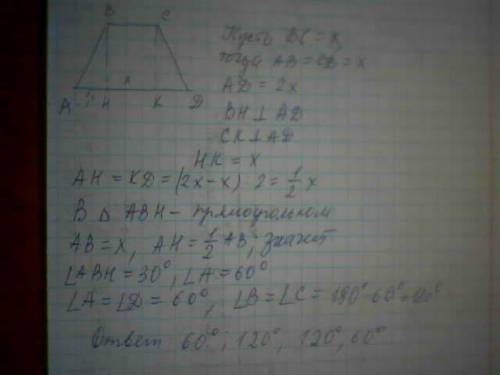 B C
A H K D
x
Пусть BC = x
тогда AB = CD = x
AD = 2x
BH ⊥ AD
CK ⊥ AD
HK = x
AH = KD = (2x - x) 2 = 1/2 x
В △ ABH - прямоугольном
AB = x, AH = 1/2 AB, значит
∠ABH = 30°, ∠A = 60°
∠A = ∠D = 60°, ∠B = ∠C = 180° - 60° = 120°
Ответ 60°, 120°, 120°, 60°